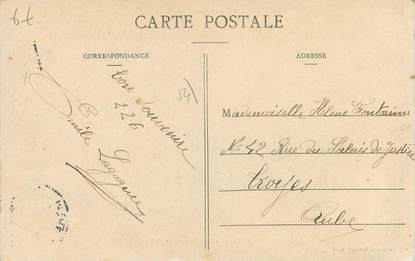 6€
CARTE POSTALE
CORRESPONDANCE
ADRESSE
54
Bon Souvenir
226
Emile
Mademoiselle Hélène Fontaine
No 42 Rue du Palais de Justice
Troyes
Aube